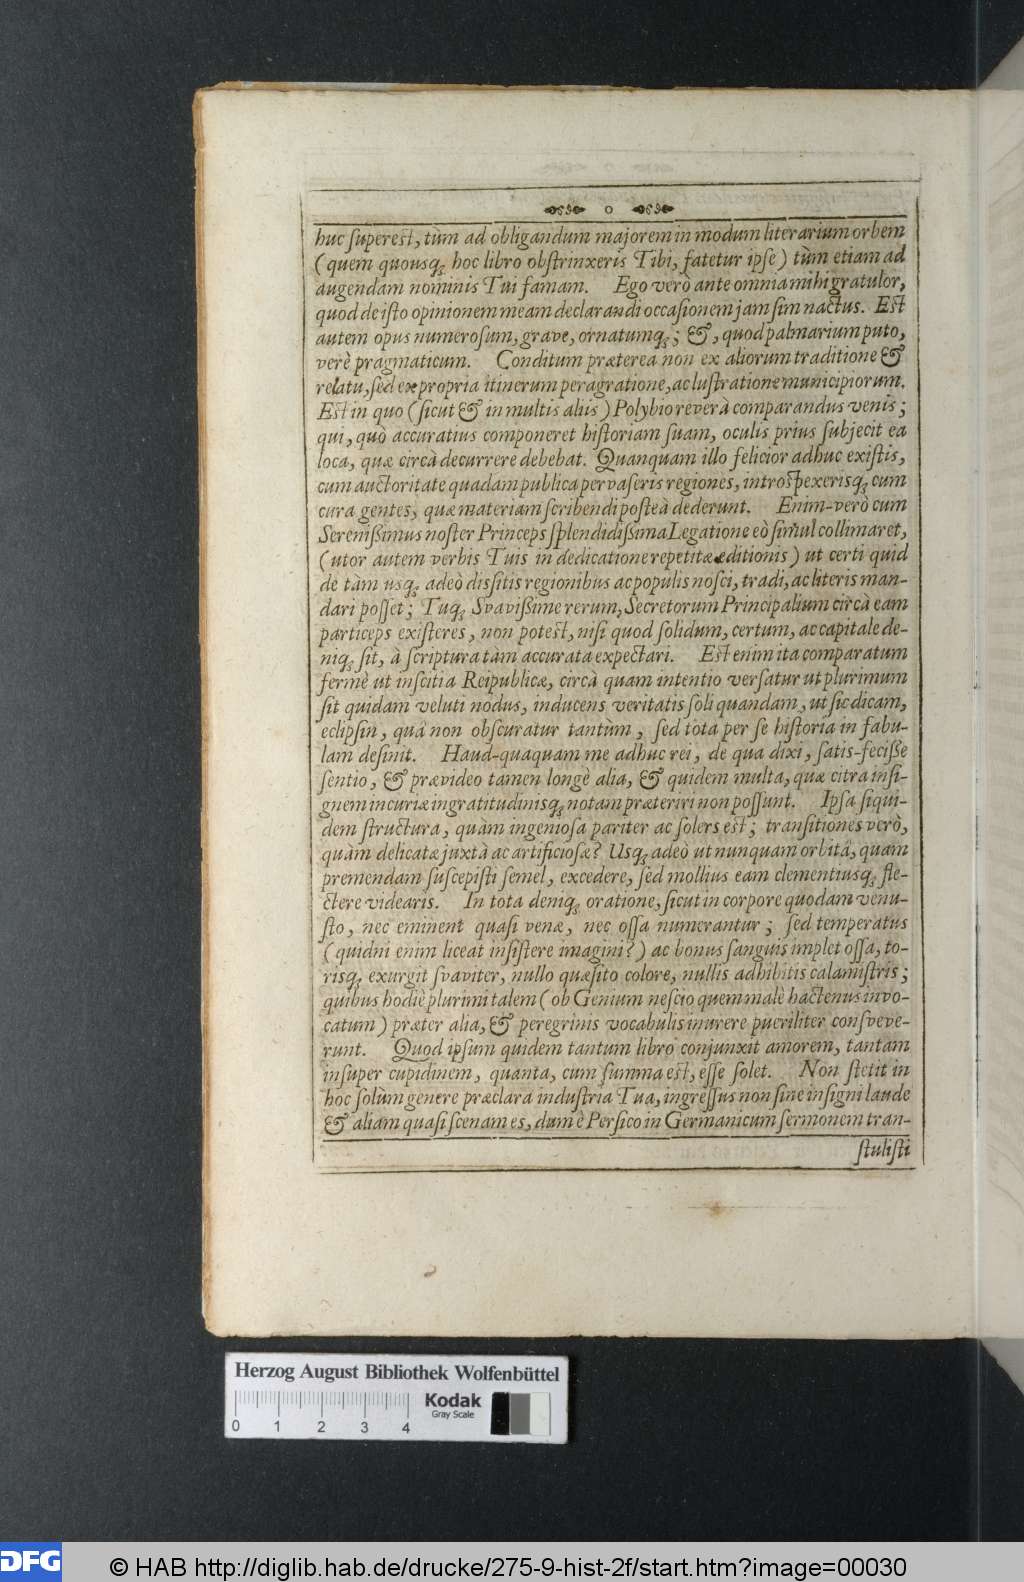 huc superest, tùm ad obligandum majorem in modum literarium orbem
(quem quousq; hoc libro obstrinxeris Tibi, fatetur ipse) tùm etiam ad
augendam nominis Tui famam. Ego verò ante omnia mihi gratulor,
quod de isto opinionem meam declarandi occasionem jam sim nactus. Est
autem opus numerosum, grave, ornatumq; ; &, quod palmarium puto,
verè pragmaticum. Conditum præterea non ex aliorum traditione &
relatu, sed ex propria itinerum peragratione, ac lustratione municipiorum.
Est in quo (sicut & in multis aliis) Polybio reverà comparandus venis;
qui, quò accuratius componeret historiam suam, oculis prius subjecit ea
loca, quæ circà decurrere debebat. Quanquam illo felicior adhuc existis,
cum auctoritate quadam publica pervaseris regiones, introspexerisq; cum
cura gentes, quæ materiam scribendi posteà dederunt. Enim-verò cum
Serenissimus noster Princeps splendidissima Legatione eò simul collimaret,
(utor autem verbis Tuis in dedicatione repetitæ editionis) ut certi quid
de tàm usq; adeò dissitis regionibus ac populis nosci, tradi, ac literis man-
dari posset; Tuq; Svavissime rerum, Secretorum Principalium circà eam
particeps existeres, non potest, nisi quod solidum, certum, ac capitale de-
niq; sit, à scriptura tàm accurata expectari. Est enim ita comparatum
fermè ut inscitia Reipublicæ, circà quam intentio versatur ut plurimum
sit quidam veluti nodus, inducens veritatis soli quandam, ut sic dicam,
eclipsin, quâ non obscuratur tantùm, sed tota per se historia in fabu-
lam desinit. Haud-quaquam me adhuc rei, de qua dixi, satis-fecisse
sentio, & prævideo tamen longè alia, & quidem multa, quæ citra insi-
gnem incuriæ ingratitudinisq; notam præteriri non possunt. Ipsa siqui-
dem structura, quàm ingeniosa pariter ac solers est; transitiones verò,
quàm delicatæ juxtà ac artificiosæ? Usq; adeò ut nunquam orbitâ, quam
premendam suscepisti semel, excedere, sed mollius eam clementiusq; fle-
ctere videaris. In tota deniq; oratione, sicut in corpore quodam venu-
sto, nec eminent quasi venæ, nec ossa numerantur; sed temperatus
(quidni enim liceat insistere imagini?) ac bonus sanguis implet ossa, to-
risq; exurgit svaviter, nullo quæsito colore, nullis adhibitis calamistris;
quibus hodiè plurimi talem (ob Genium nescio quem malè hactenus invo-
catum) præter alia, & peregrinis vocabulis inurere pueriliter consveve-
runt. Quod ipsum quidem tantum libro conjunxit amorem, tantam
insuper cupidinem, quanta, cum summa est, esse solet. Non stetit in
hoc solùm genere præclara industria Tua, ingressus non sine insigni laude
& aliam quasi scenam es, dum è Persico in Germanicum sermonem tran-
stulisti
Herzog August Bibliothek Wolfenbüttel
Kodak
Gray Scale
0 1 2 3 4
DFG
© HAB http://diglib.hab.de/drucke/275-9-hist-2f/start.htm?image=00030